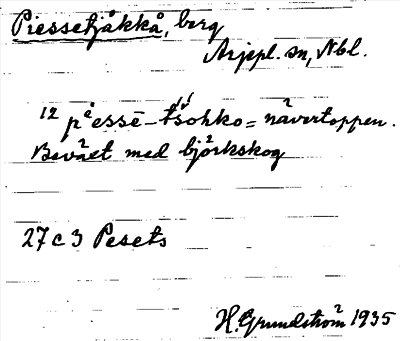 Piessetjåkkå, berg
Arjepl. sn, Nbl.
12 pⁱessē-tśohko = nävertoppen.
Beväxt med björkskog
27 c 3 Pesets
H. Grundström 1935